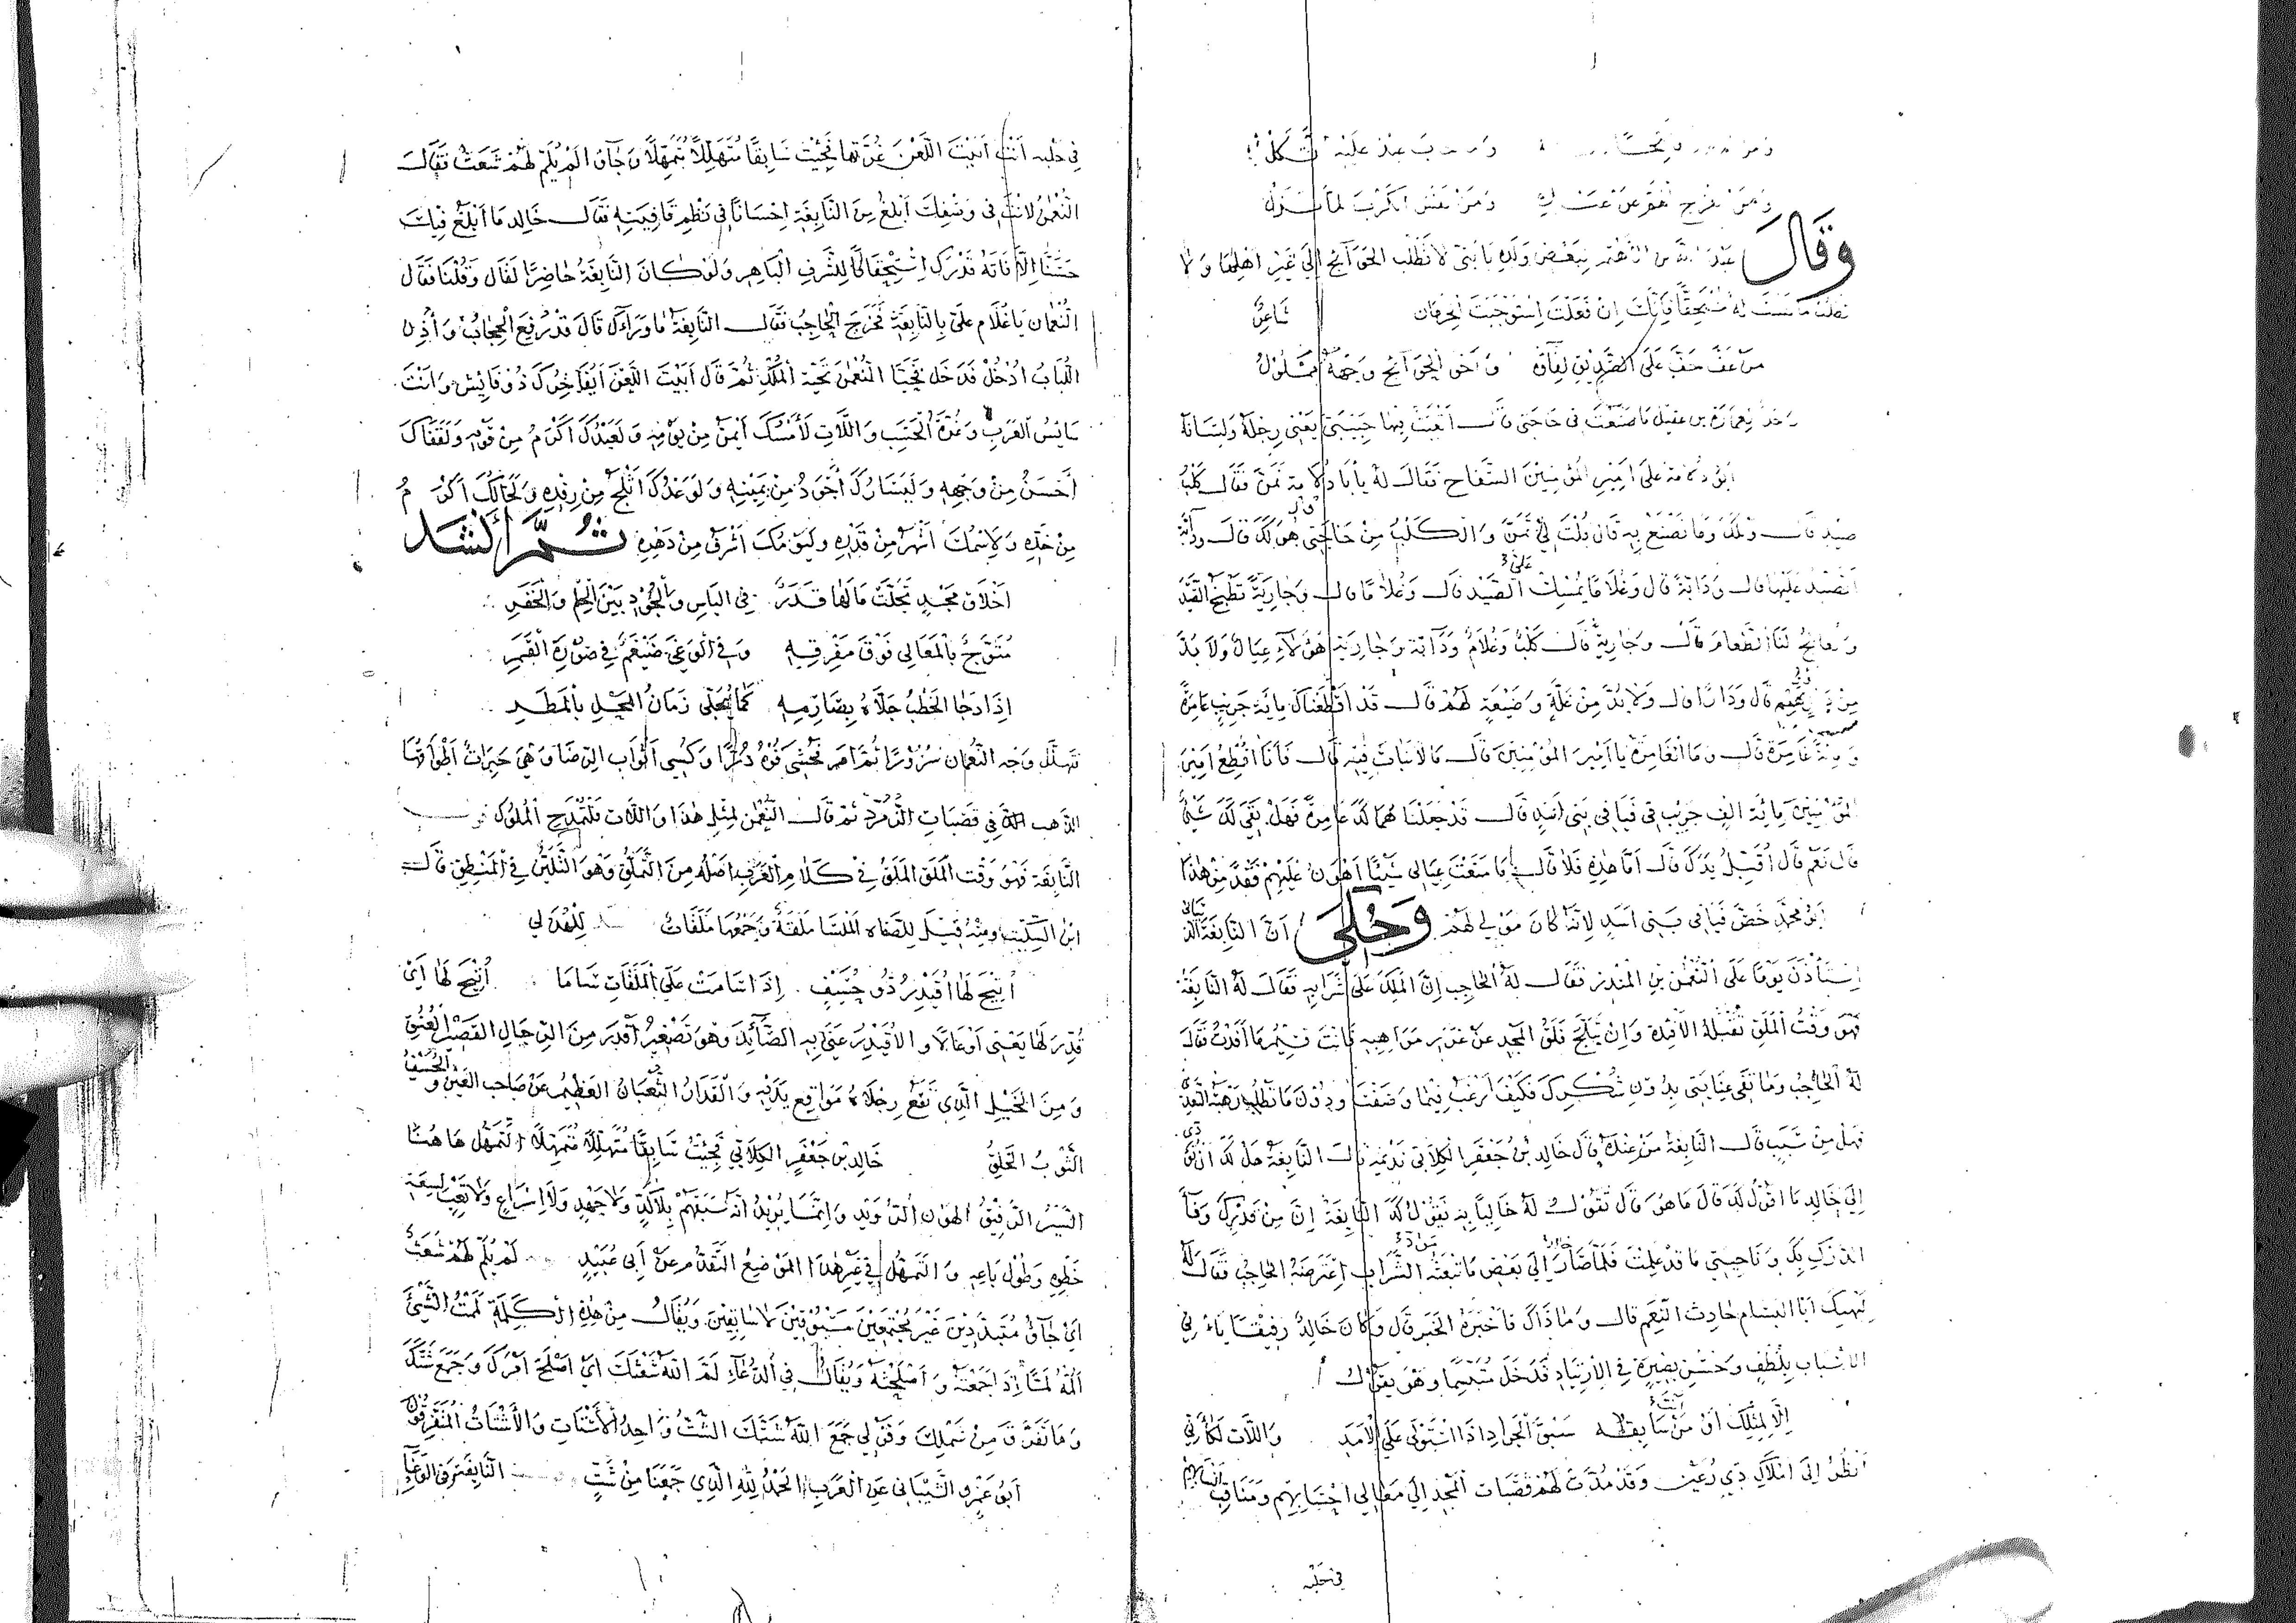 وقال عبد الله بن الاهتم لبعض ولده يا بني لا تطلب الحوائج الى غير اهلها ولا
تطلب ما لست له مستحقا فانك ان فعلت استوجبت الحرمان شاعر
من عف خف على الصديق لقاؤه واخو الحوائج وجهه مملول
لعمارة بن عقيل ما صنعت في حاجتي قال اتعبت فيها حبيبتي يعني رجله ولسانه
ابو دلامة على امير المؤمنين السفاح فقال له يا با دلامة تمن فقال كلب
صيد قال ولك وما تصنع به قال قلت لي تمن والكلب من حاجتي قال هو لك قال ودابة
اتصيد عليها قال ودابة قال وغلاما يمسك على الصيد قال وغلاما قال وجارية تطبخ الصيد
وتعالج لنا الطعام قال وجارية قال كلب وغلام ودابة وجارية هؤلاء عيال ولا بد
من دار قال ودارا قال ولا بد من غلة وضيعة لهم قال قد اقطعناك مائة جريب عامرة
ومئة غامرة قال وما الغامرة يا امير المؤمنين قال ما لا نبات فيه قال فانا اقطع امير
المؤمنين مائة الف جريب في فيافي بني اسد قال قد جعلناهما لك عامرة فهل بقي لك شيء
قال نعم قال اقبل يدك قال اما هذه فلا قال ما منعت عيالي شيئا اهون عليهم فقدا من هذا
ابو محمد خص فيافي بني اسد لانه كان مولى لهم وحكى ان النابغة الذبياني
استأذن يوما على النعمن بن المنذر فقال له الحاجب ان الملك على شرابه فقال له النابغة
فهو وقت الملق تقبله الافئدة وان تبلج فلق المجد عن غرر مواهبه فانت قسيم ما افدت فقال
له الحاجب وما تفي عنايتي بدون شكرك فكيف ارغب فيما وصفت ودون ما تطلب رهبة التعدي
فهل من سبب قال النابغة من عنده قال خالد بن جعفر الكلابي نديمه قال النابغة هل لك ان تؤدي
الى خالد ما اقول لك قال ما هو قال تقول له خاليا به يقول لك النابغة ان من قدرك وفاء
الدرك بك وناحيتي ما قد علمت فلما صار خالد الى بعض ما تبعثه الشراب اعترضه الحاجب فقال له
ليهنك ابا البسام حادث النعم قال وما ذاك فاخبره الخبر قال وكان خالد رفيقا يأتي
الاسباب بلطف وحسن بصيرة في الارتياد فدخل متبسما وهو يقول
الا لمثلك او من انت سابقه سبق الجواد اذا استولى على الامد واللات لكأني
انظر الى املاك ذي رعين وقد مدت لهم قصبات المجد الى معالي احسابهم ومناقب انسابهم
في حلبة
في حلبة انت ابيت اللعن غرتها فجئت سابقا متهللا متمهلا وجاؤا لم يلم لهم شعث فقال
النعمن لانت في وصفك ابلغ من النابغة احسانا في نظم قافيته فقال خالد ما ابلغ فيك
حسنا الا فاته قدرك استحقاقا للشرف الباهر ولو كان النابغة حاضرا لقال وقلنا فقال
النعمان يا غلام علي بالنابغة فخرج الحاجب فقال النابغة ما وراءك قال قد رفع الحجاب واذن
الباب ادخل فدخل فحيا النعمن تحية الملك ثم قال ابيت اللعن ايفاخرك ذو فائش وانت
سايس العرب وغرة الحسب واللات لأمسك ايمن من يومه ولعبدك اكرم من قومه ولقفاك
احسن من وجهه وليسارك اجود من يمينه ولوعدك اثلج من رفده ولخالك اكرم
من جده ولاسمك اشهر من قدره وليومك اشرف من دهره ثم انشد
اخلاق مجد تجلت ما لها قدر في الباس والجود بين الحلم والخفر
متوج بالمعالي فوق مفرقه وفي الوغى ضيغم في صورة القمر
اذا دجا الخطب جلاه بصارمه كما يجلى زمان المحل بالمطر
فتهلل وجه النعمان سرورا ثم امر فحشى فوه درا وكسي اثواب الرضا وهي حبرات اطواقها
الذهب في قضبات الزمرد ثم قال النعمن لمثل هذا واللات فلتمدح الملوك قول
النابغة فهو وقت الملق الملق في كلام العرب اصله من التملق وهو التليين في المنطق قال
ابن السكيت ومنه قيل للصفاه الملسا ملقة وجمعها ملقات للهذلي
اتيح لها اقيدر ذو حشيف اذا سامت على الملقات ساما اتيح لها اي
قدر لها يعني اوعالا والاقيدر عنى به الصائد وهو تصغير اقدر من الرجال القصير العنق
ومن الخيل الذي تقع رجلاه مواقع يديه والقدار الثعبان العظيم عن صاحب العين والحشيف
الثوب الخلق خالد بن جعفر الكلابي فجئت سابقا متهللا متمهلا التمهل ها هنا
السير الرفيق الهون الرويد وانما يريد انه سبقهم بلا كد ولا جهد ولا اسراع ولا تعب لسعة
خطوه وطول باعه والتمهل في غير هذا الموضع التقدم عن ابي عبيد لم يلم لهم شعث
اي جاؤا متبددين غير مجتمعين مسبوقين لا سابقين ويقال من هذه الكلمة لممت الشيء
المه لما اذا جمعته واصلحته ويقال في الدعاء لم الله شعثك اي اصلح امرك وجمع شتك
وما تفرق من شملك وقولي جمع الله شتك الشت واحد الاشتات والاشتات المتفرقون
ابو عمرو الشيباني عن العرب الحمد لله الذي جمعنا من شت النابغة وفي الوغا